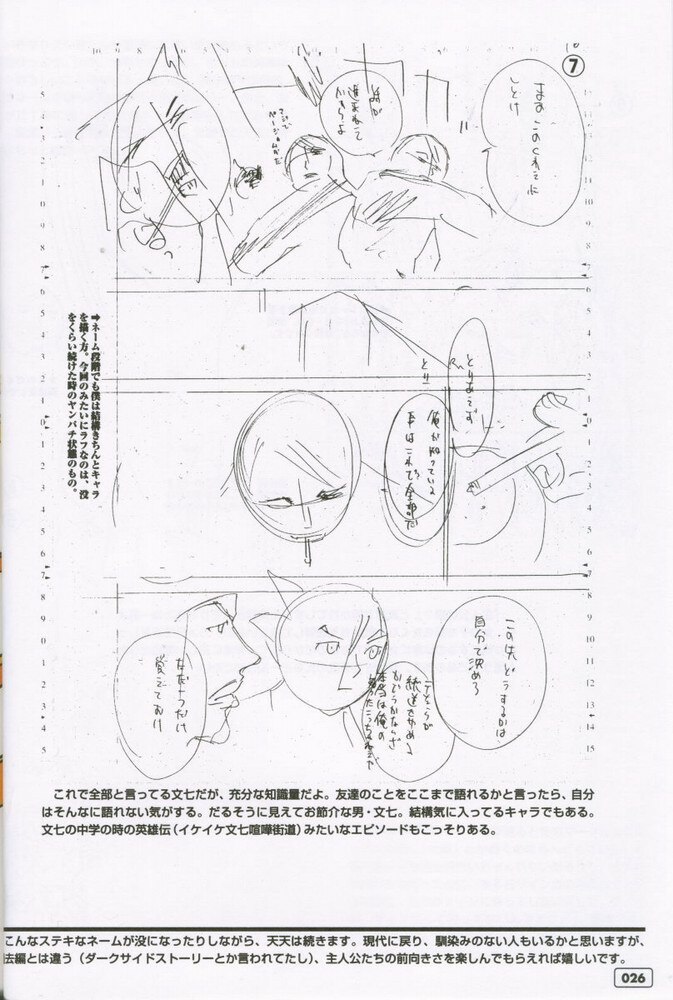 ⑦
まあ このくれえに
しとけ
とりあえず
俺が知っている
事はこれで全部だ
この先どうするかは
自分で決めろ
ただ一つだけ
覚えておけ
➡ネーム段階でも僕は結構きちんとキャラ
を描く方。今回のみたいにラフなのは、没
をくらい続けた時のヤンパチ状態のもの。
これで全部と言ってる文七だが、充分な知識量だよ。友達のことをここまで語れるかと言ったら、自分
はそんなに語れない気がする。だるそうに見えてお節介な男・文七。結構気に入ってるキャラでもある。
文七の中学の時の英雄伝（イケイケ文七喧嘩街道）みたいなエピソードもこっそりある。
こんなステキなネームが没になったりしながら、天天は続きます。現代に戻り、馴染みのない人もいるかと思いますが、
法編とは違う（ダークサイドストーリーとか言われてたし）、主人公たちの前向きさを楽しんでもらえれば嬉しいです。
026